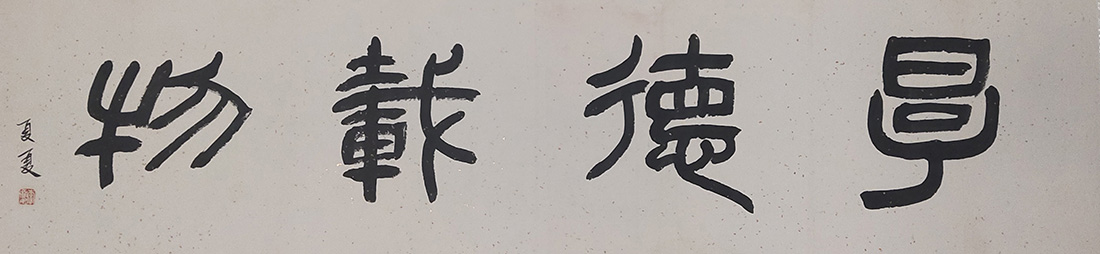 厚德載物
夏夏